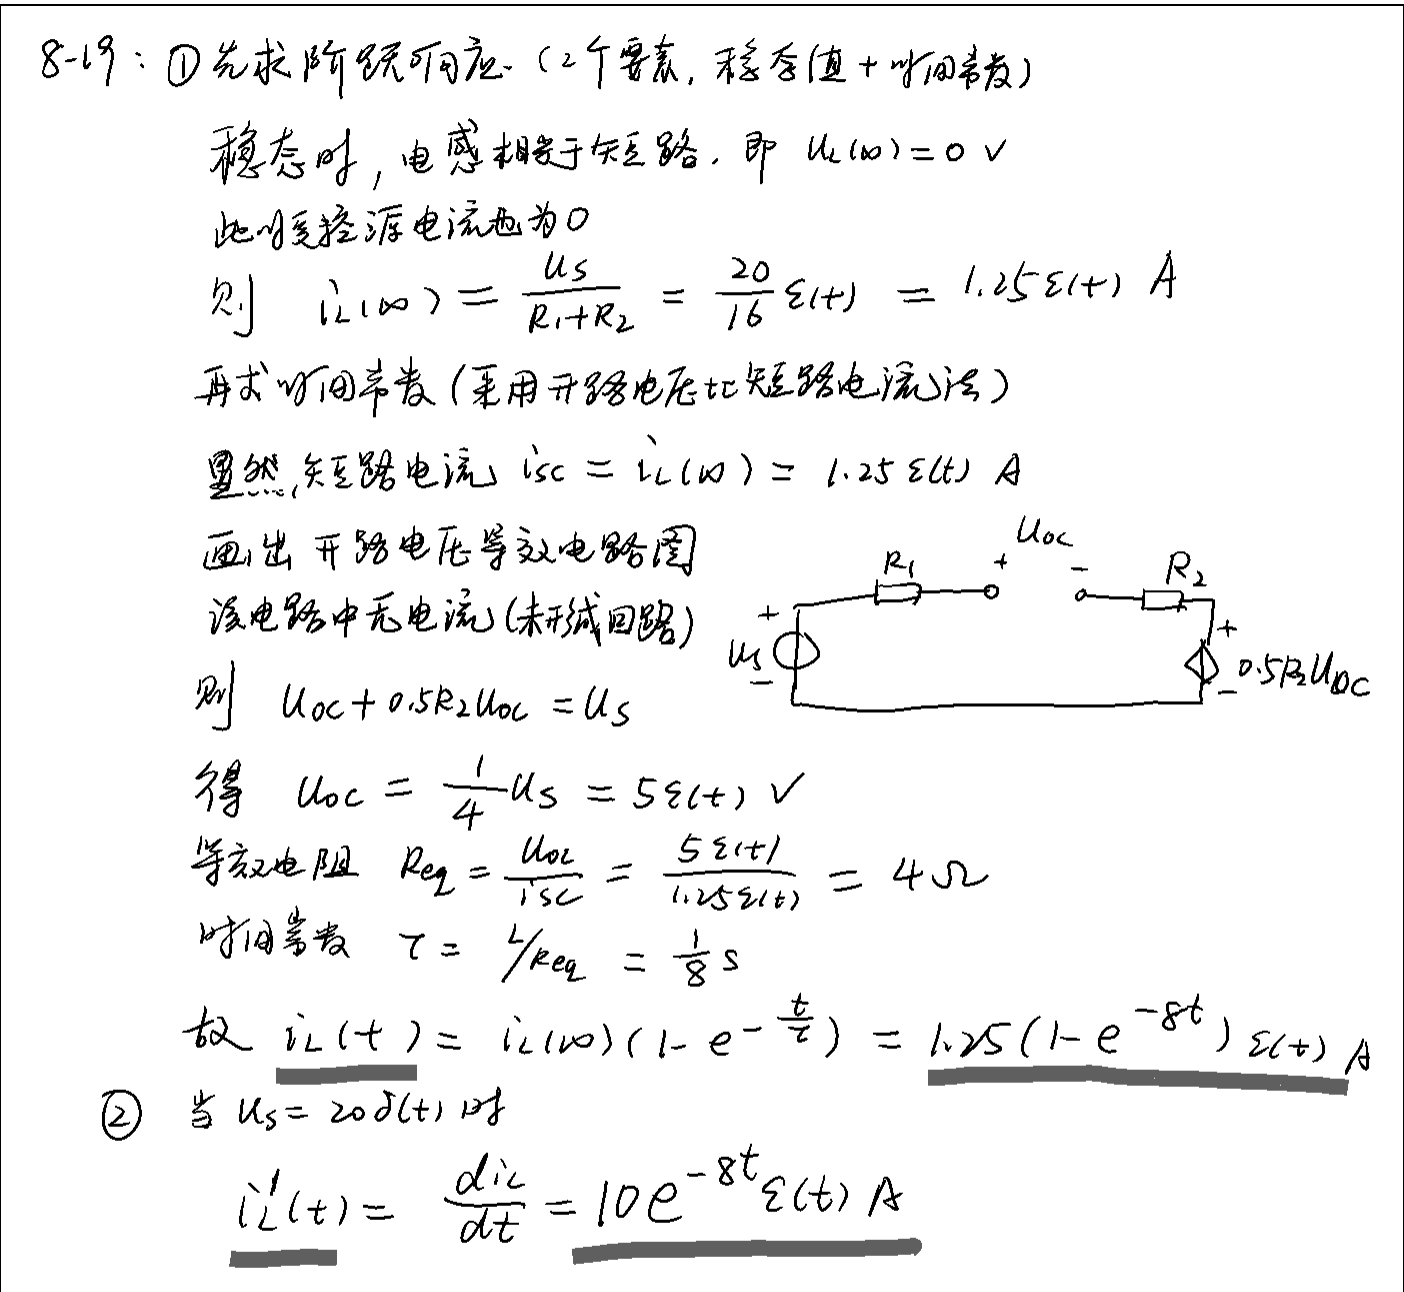 8-19: ①先求阶跃响应. (2个要素, 稳态值+时间常数)
稳态时, 电感相当于短路. 即 u_L(∞)=0 V
此时受控源电流也为0
则 i_L(∞) = u_S/(R_1+R_2) = 20/16 ε(t) = 1.25 ε(t) A
再求时间常数 (采用开路电压比短路电流法)
显然, 短路电流 i_sc = i_L(∞) = 1.25 ε(t) A
画出开路电压等效电路图
该电路中无电流 (未形成回路)
R_1 + u_oc - R_2
+ u_s - + 0.5R_2u_oc -
则 u_oc + 0.5R_2u_oc = u_s
得 u_oc = 1/4 u_s = 5ε(t) V
等效电阻 R_eq = u_oc/i_sc = 5ε(t)/1.25ε(t) = 4Ω
时间常数 τ = L/R_eq = 1/8 s
故 i_L(t) = i_L(∞)(1-e^{-t/τ}) = 1.25(1-e^{-8t}) ε(t) A
② 当 u_s = 20δ(t) 时
i_L'(t) = di_L/dt = 10e^{-8t} ε(t) A